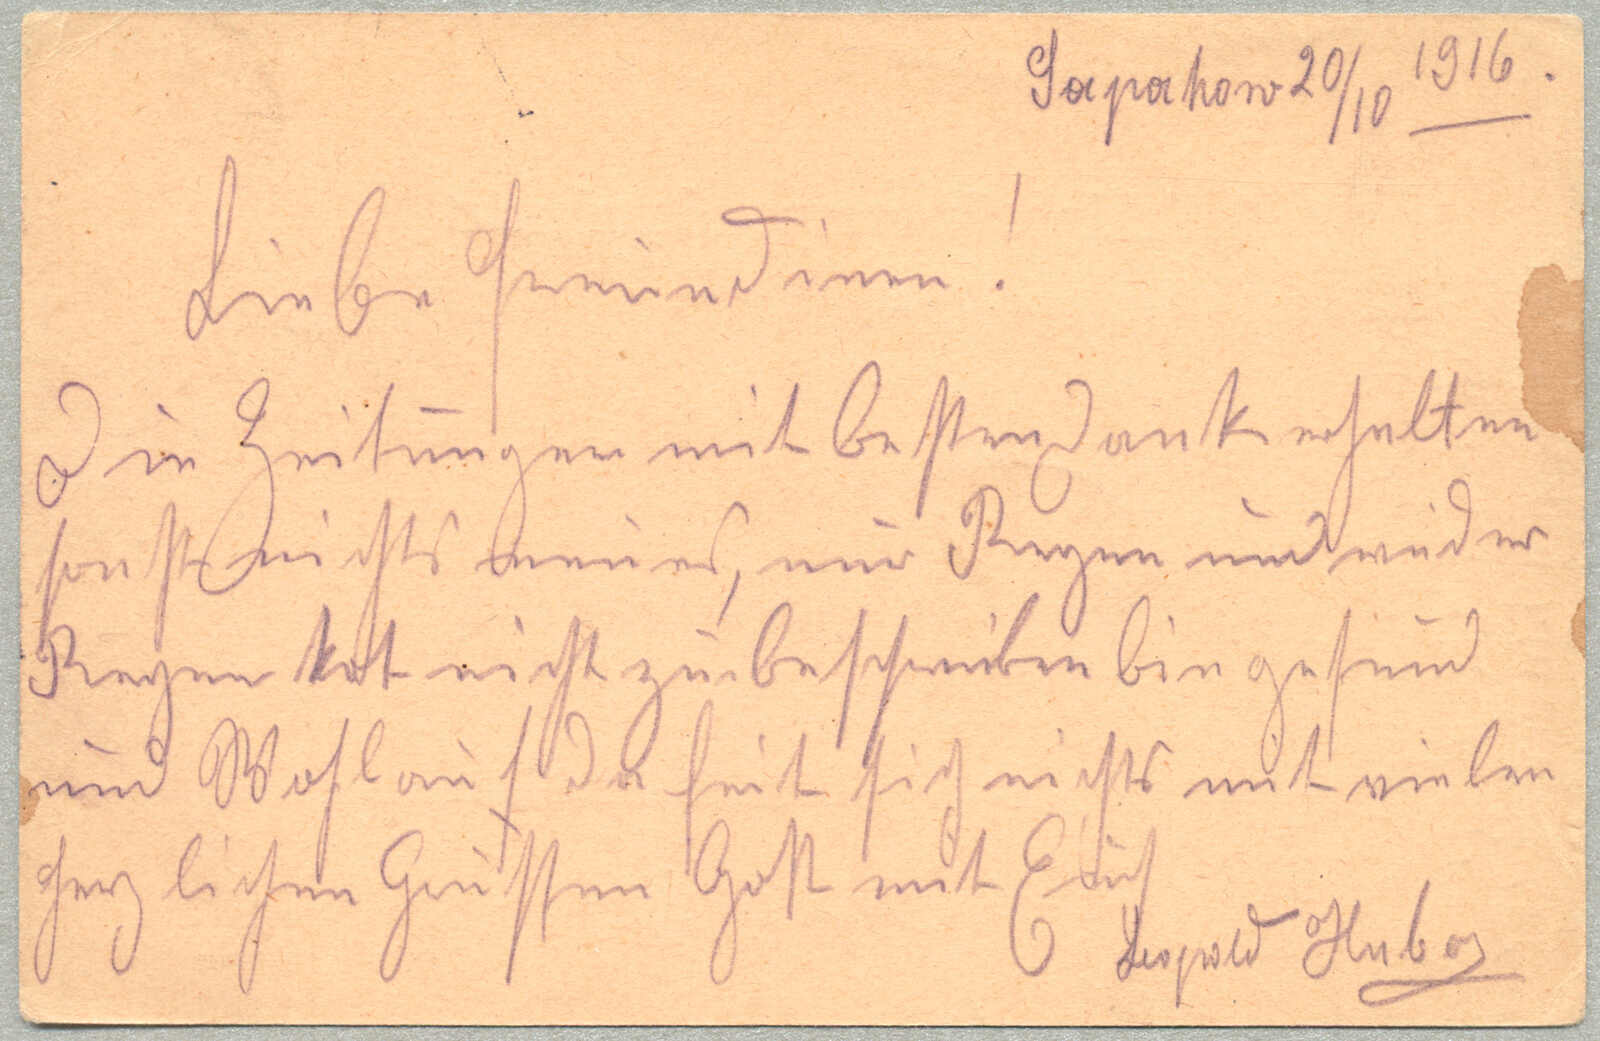 Sapakow 20/10 1916.
Liebe Freundinen!
Die Zeitungen mit bestendank erhalten
sonst nichts neues, nur Regen und wieder
Regen hat nicht zu beschreiben bin gesund
und Wohlauf da feit sich nichts mit vielen
herzlichen Grüssen Gott mit Euch
Leopold Huber